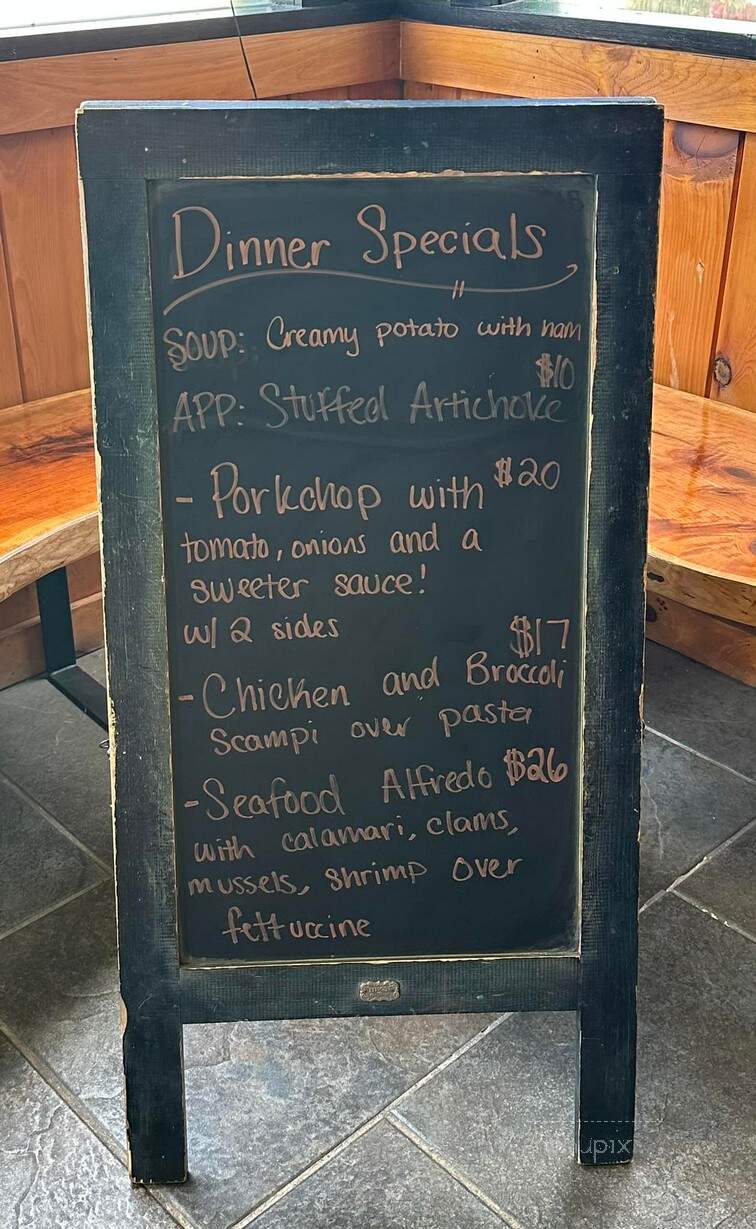 Dinner Specials
SOUP: Creamy potato with ham
$10
APP: Stuffed Artichoke
- Porkchop with $20
tomato, onions and a
sweeter sauce!
w/ 2 sides
$17
- Chicken and Broccoli
Scampi over pasta
- Seafood Alfredo $26
with calamari, clams,
mussels, shrimp over
fettuccine